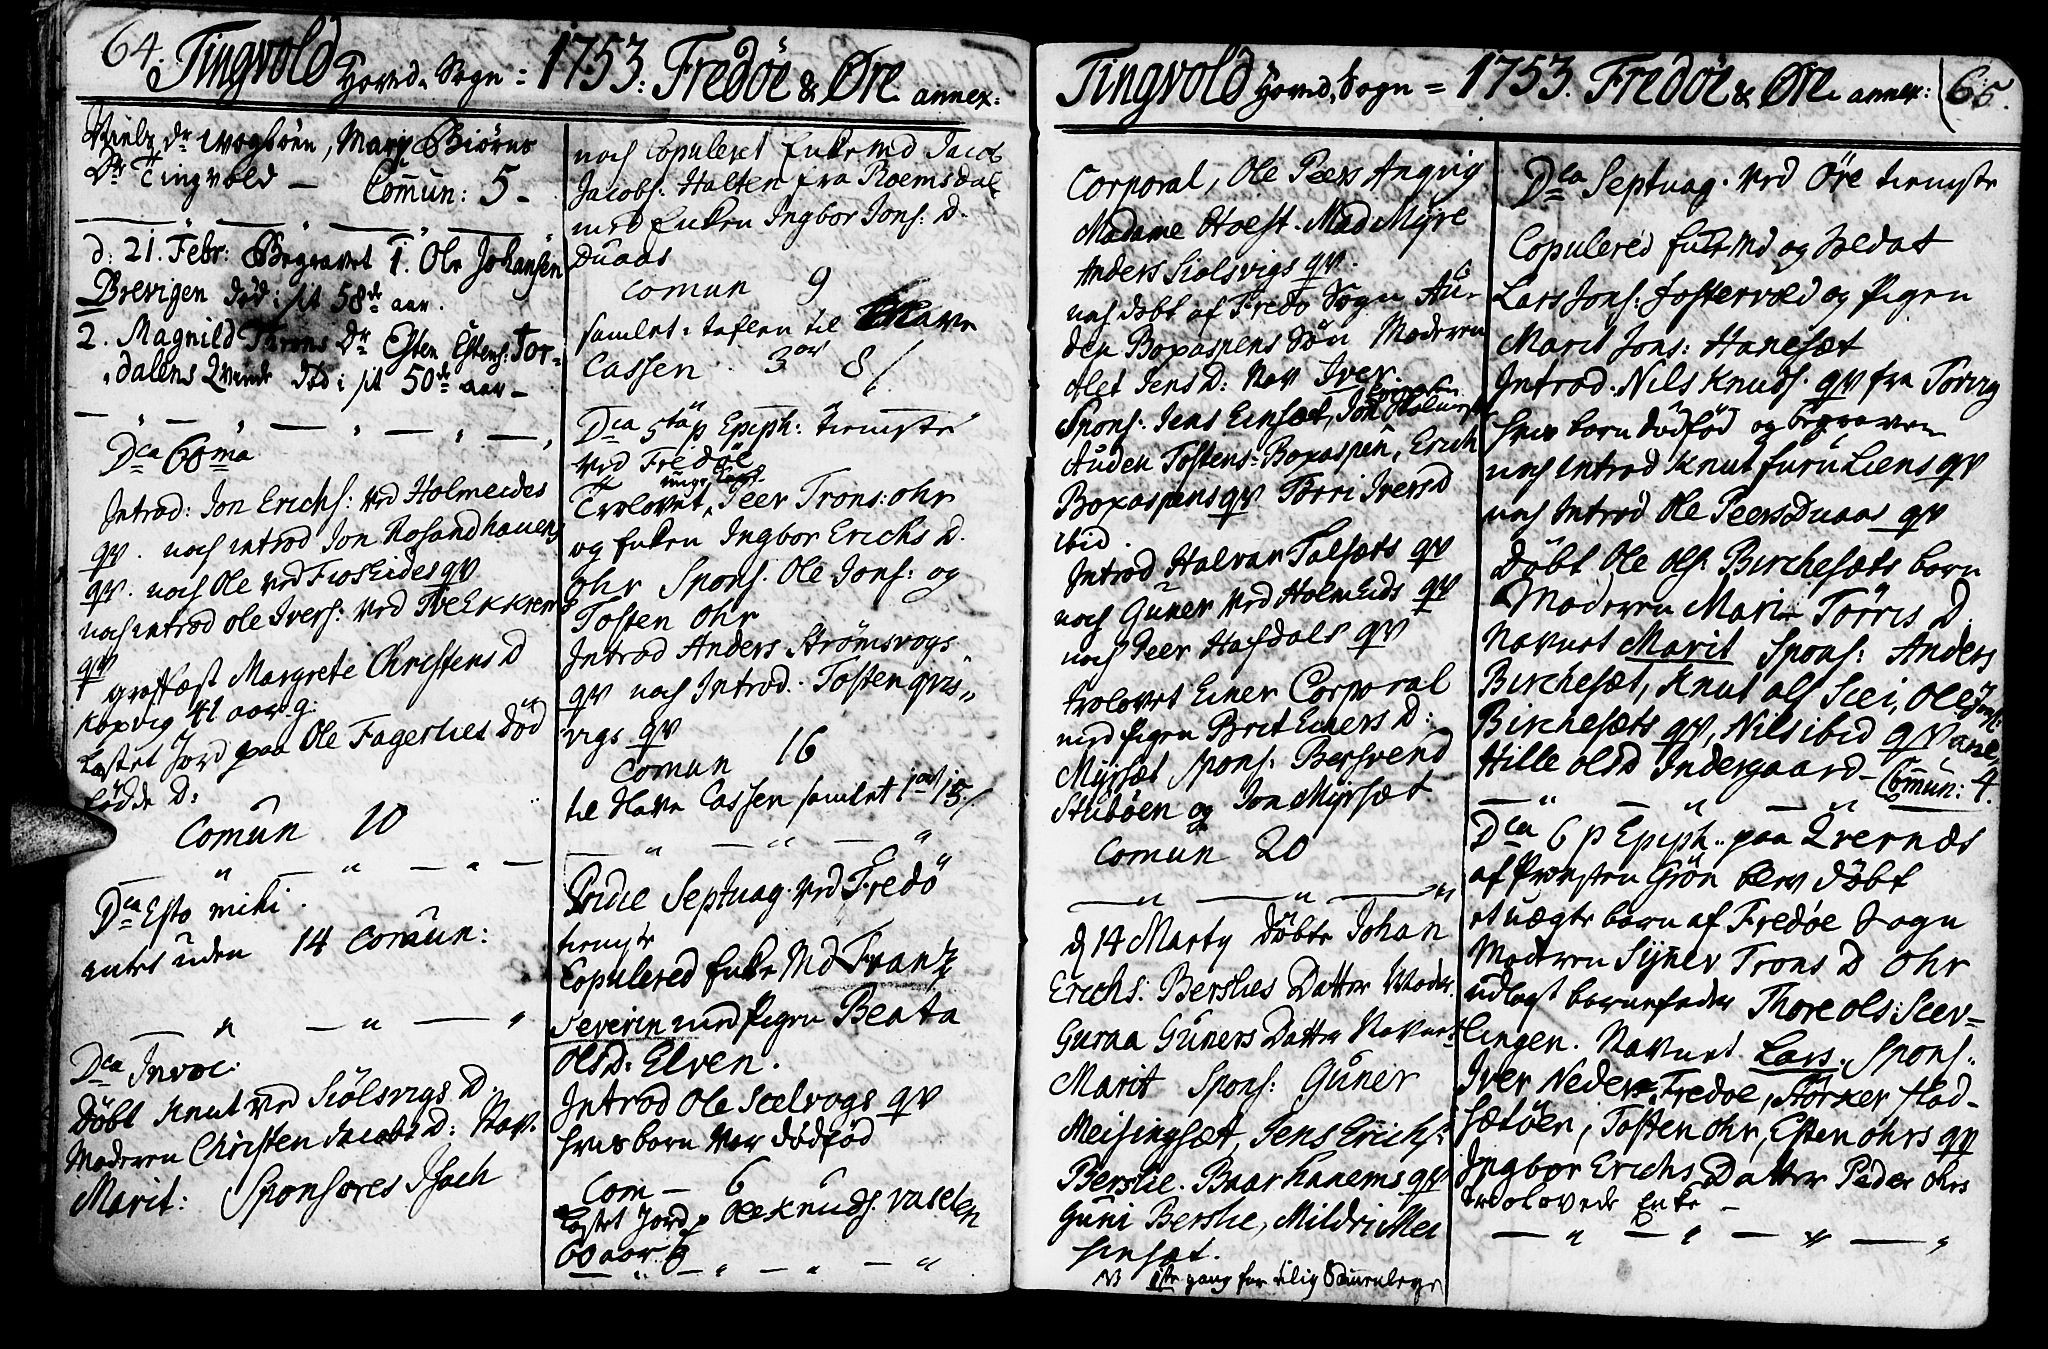 64. Tingvold Hoved Sogn = 1753: Fredöe & Øre annex:
Dr Wogböen, Marij Biörns
Dr Tingvold — Comun: 5 -
d: 21. Febr: Begravet 1. Ole Johansen
Brevigen död: sit 58de aar.
2. Magnild Dr Esten Estens: Tor-
dalens Qvinde död i sit 50de aar -
Dca 60ma
Introd: Jon Erichs: ved Holmeides
qv. noch introd Jon Rosandhauens
qv. noch Ole ved Fioseides qv
noch introd ole Ivers: ved TveEkkrem
qv
graffæst Margrete Christens D
Kopvig 41 aar g:
Kastet Jord paa Ole Fagerlies död
födde D:
Comun 10
Dca Esto mihi.
intet uden 14 comun:
Dca Invoc:
Döbt Knut ved Siölsvigs D:
Moderen Christen Jacobs D: Nav.
Marit: Sponsores Isach
noch Copuleret Enkemd Jacob
Jacobs: Halten fra Roemsdal
med Enken Ingbor Jons: D.
Duaas
comun 9
samlet i taflen til Have
Cassen. 3 ort 8 /
Dca 5ta p Epiph: tieneste
ved Fredöe
Trolovet unge Karl Peer Trons: ohr
og Enken Ingbor Erichs D.
ohr Spons. Ole Jons: og
Tosten ohr
Introd Anders Strömsvogs
qv noch Introd. Tosten qvis
vigs qv
comun 16
til Have Cassen samlet 1 ort 15 /
Pridie Septuag. ved Fredö
tieneste
Copulered Enke Md Frantz
Severin med Pigen Beata
Olsd: Elven.
Introd Ole Scelvogs qv
hvis barn var dödföd
Com — 6
Kastet Jord p Ole Knuds. vaselen
60 aar g
Tingvold Hoved Sogn = 1753. Fredöe & Øre annex: 65.
Corporal, Ole Peers Angvig
Madame Holst. Mad Myre
Anders Siolsvigs qv.
noch döbt af Fredö Sogn Au-
den Boxaspens Sön Moderen
Alet Jens D: Nav Iver.
Spons: Jens Einsæt, Jon
Auden Tostens: Boxaspen, Erich
Boxaspens qv Törri Ivers D
ibid.
Introd Halvar Talsæts qv
noch Guner ved Holmeids qv
noch Peer Hafsdals qv
trolovet Einer Corporal
med Pigen Brit Einers D:
Myrsæt Spons: Bersvend
Stuböen og Jon Myrsæt
Comun 20
d 14 Marty Döbte Johan
Erichs: Berslies Datter Moder.
Guraa Guners Datter Navnet
Marit Spons: Guner
Meisingsæt, Jens Erichs:
Berslie. Baarhanems qv
Guni Berslie, Mildri Mei
sinsæt.
NB 1ste gang for tilig
Dca Septuag. ved Öre tieneste
Copulered Enkemd og Soldat
Lars Jons: Fostervold og Pigen
Marit Jons: Hanesæt
Introd. Nils Knuds. qv fra Torvig
hvis barn dödföd og begraven
noch introd Knut furuLiens qv
noch Introd Ole Peers Duaas qv
Döbt Ole ols: Birchesæts barn
Moderen Mari Törris D.
Navnet Marit Spons: Anders
Birchesæt, Knut ols Scei, Ole Jons:
Birchesæts qv, Nils ibid qv ane
Hille olsd Indergaard — Comun: 4.
Dca 6 p Epiph.. paa Qvernæs
af Provsten Grön blev döbt
et uægte barn af Fredöe Sogn
Moderen Synev Trons D Ohr
udlagt barnefader Thore ols: Scev-
lingen. Navnet Lars. Spons.
Iver Neder Fredöe, Störker Flad-
sætöen, Tosten ohr, Esten ohrs qv
Ingbor Erichs Datter Peder ohrs
troolovede Enke —